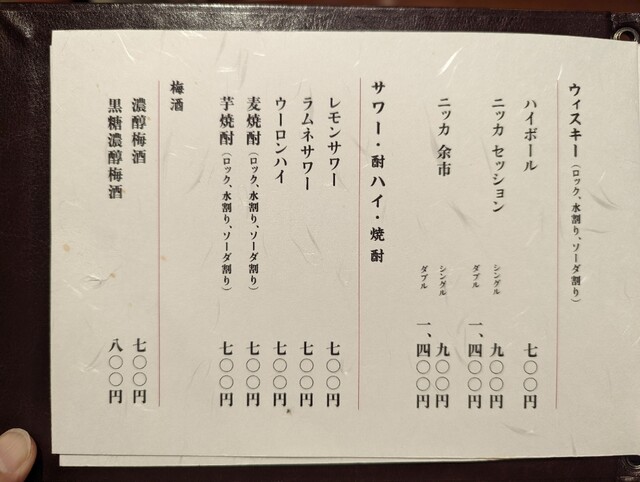 ウィスキー（ロック、水割り、ソーダ割り）
ハイボール 七〇〇円
ニッカ セッション シングル 九〇〇円
ダブル 一、四〇〇円
ニッカ 余市 シングル 九〇〇円
ダブル 一、四〇〇円
サワー・酎ハイ・焼酎
レモンサワー 七〇〇円
ラムネサワー 七〇〇円
ウーロンハイ 七〇〇円
麦焼酎（ロック、水割り、ソーダ割り） 七〇〇円
芋焼酎（ロック、水割り、ソーダ割り） 七〇〇円
梅酒
濃醇梅酒 七〇〇円
黒糖濃醇梅酒 八〇〇円